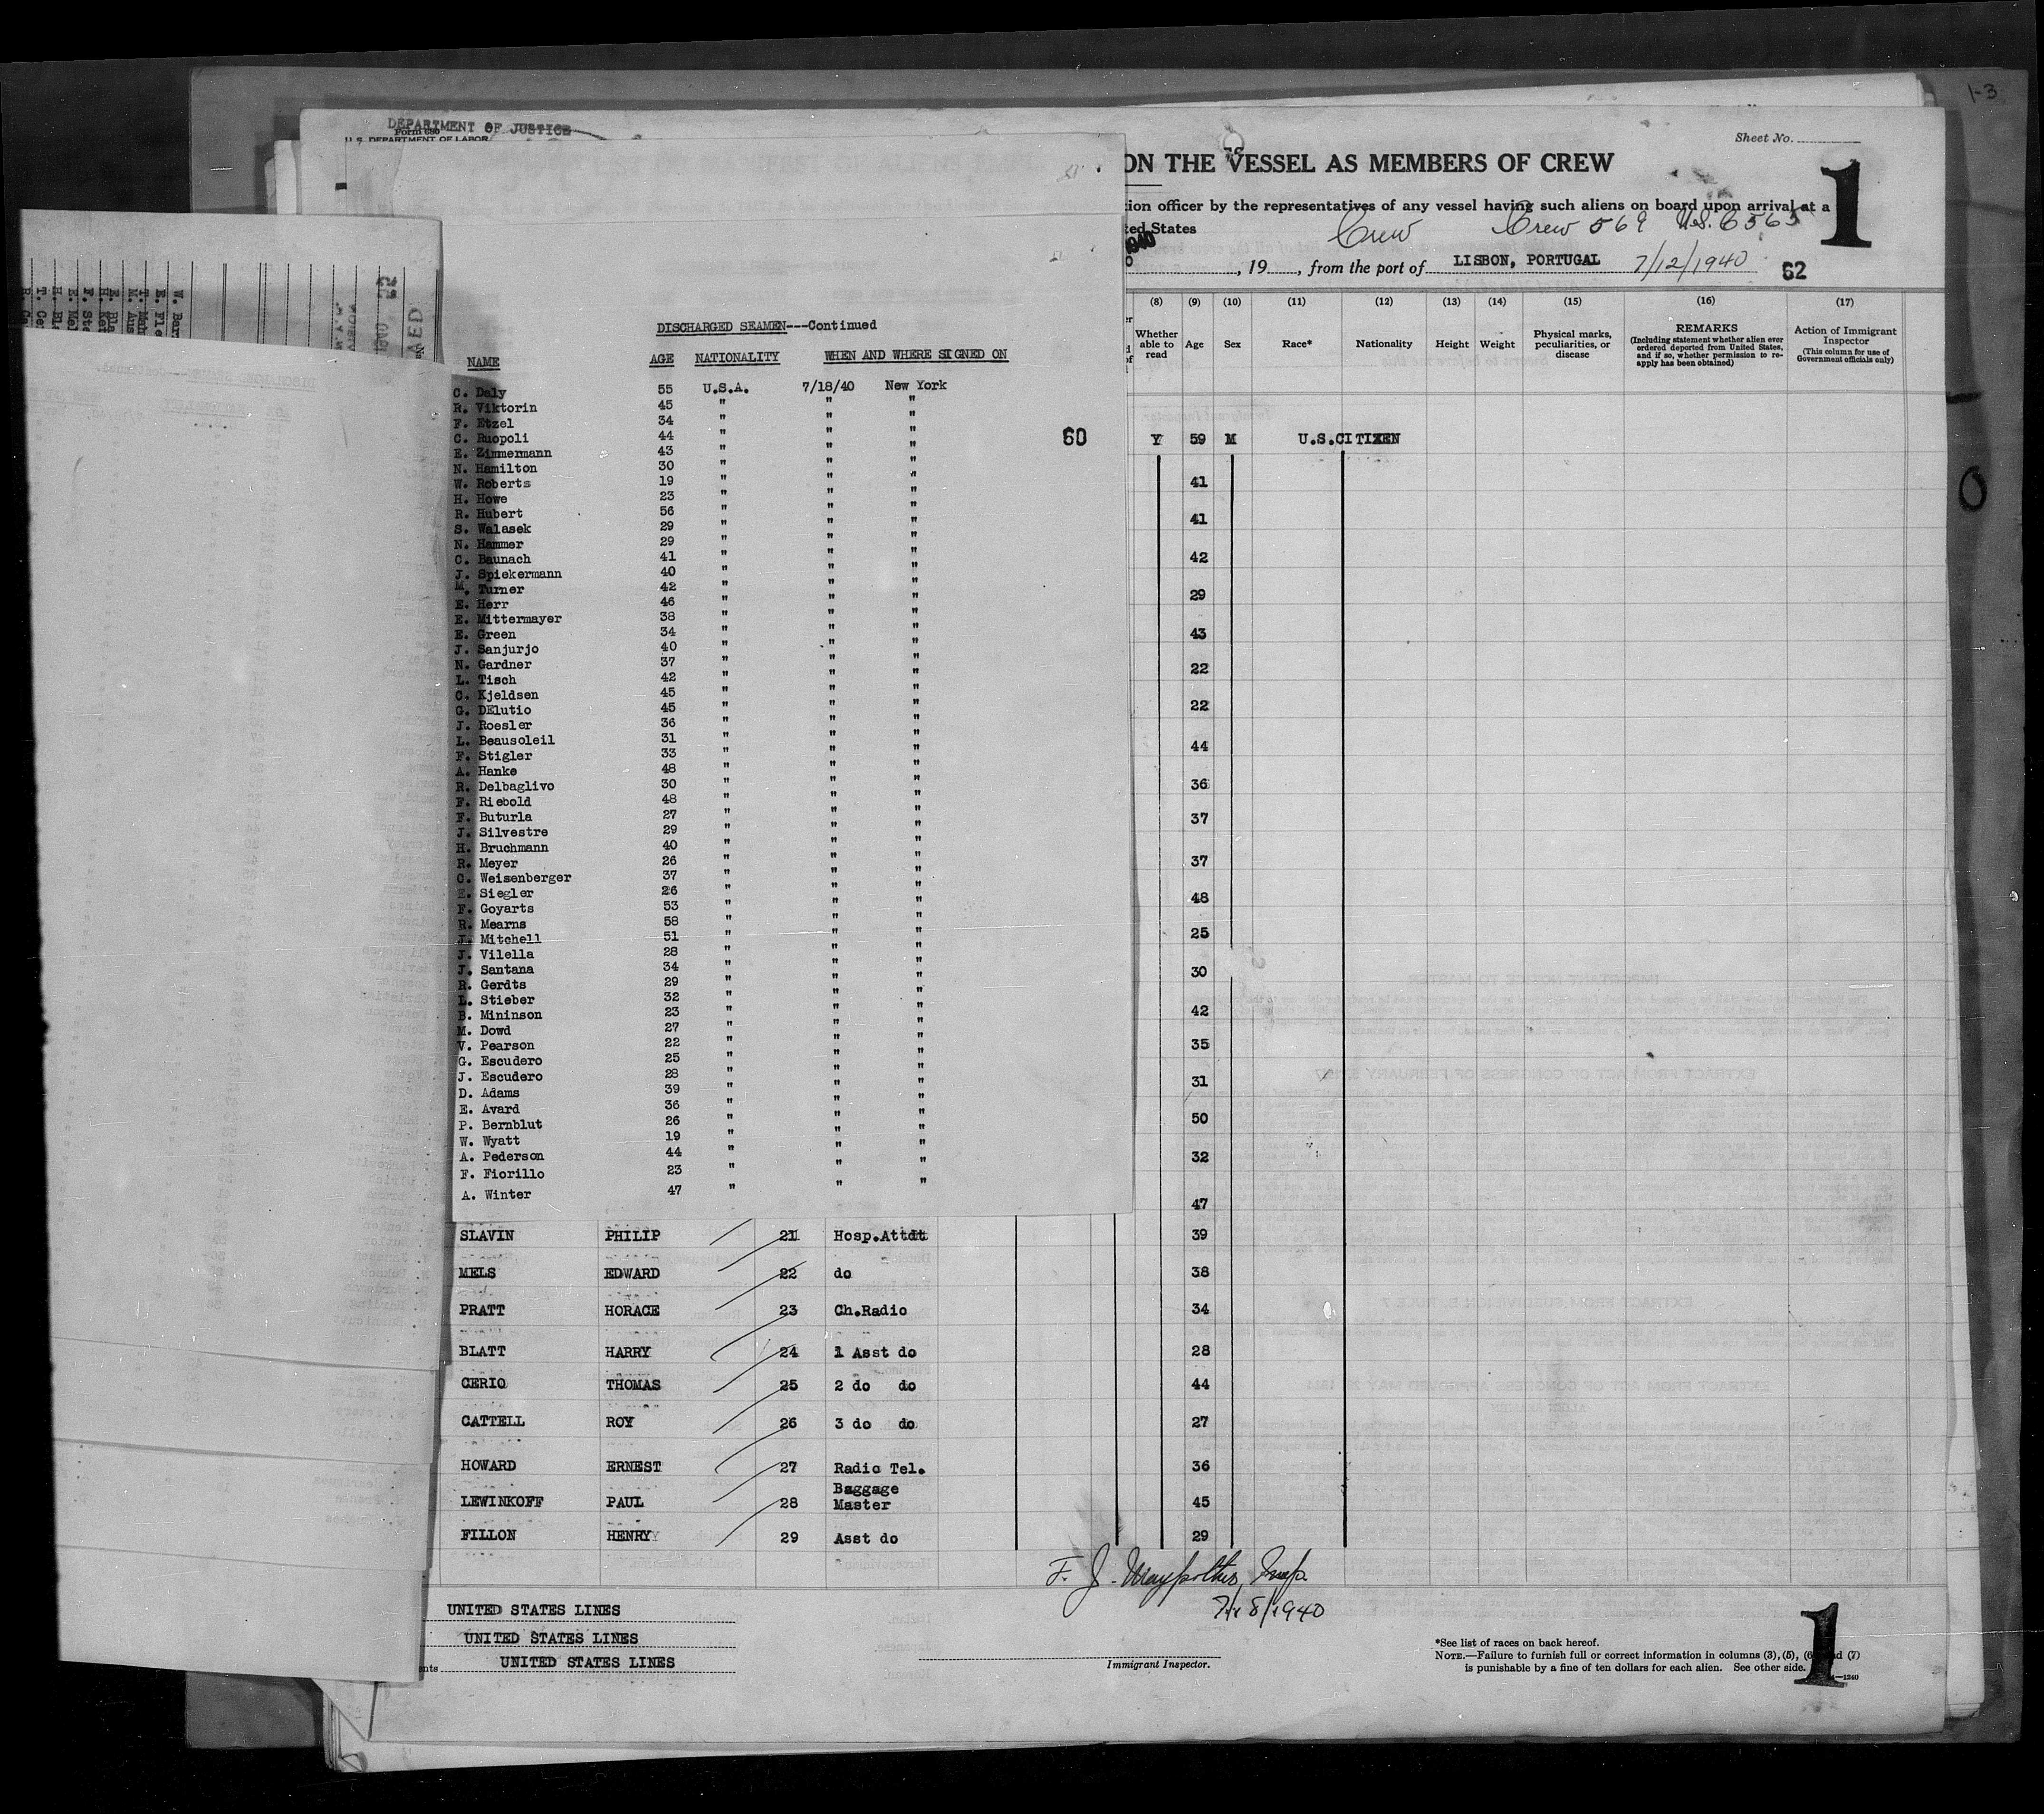 1-3
DEPARTMENT OF JUSTICE
Form 680
U.S. DEPARTMENT OF LABOR
Sheet No.
ON THE VESSEL AS MEMBERS OF CREW
1
tion officer by the representatives of any vessel having such aliens on board upon arrival at a
ted States
Crew Crew 569 U.S. C 565
, 19 , from the port of LISBON, PORTUGAL 7/12/1940 62
(8) (9) (10) (11) (12) (13) (14) (15) (16) (17)
Whether able to read Age Sex Race* Nationality Height Weight Physical marks, peculiarities, or disease REMARKS (Including statement whether alien ever ordered deported from United States, and if so, whether permission to re-apply has been obtained) Action of Immigrant Inspector (This column for use of Government officials only)
DISCHARGED SEAMEN---Continued
NAME AGE NATIONALITY WHEN AND WHERE SIGNED ON
C. Daly 55 U.S.A. 7/18/40 New York
R. Viktorin 45 " " "
F. Etzel 34 " " "
C. Ruopoli 44 " " "
E. Zimmermann 43 " " "
N. Hamilton 30 " " "
W. Roberts 19 " " "
H. Howe 23 " " "
R. Hubert 56 " " "
S. Walasek 29 " " "
N. Hammer 29 " " "
C. Baunach 41 " " "
J. Spiekermann 40 " " "
M. Turner 42 " " "
E. Herr 46 " " "
E. Mittermayer 38 " " "
E. Green 34 " " "
J. Sanjurjo 40 " " "
N. Gardner 37 " " "
L. Tisch 42 " " "
C. Kjeldsen 45 " " "
G. DElutio 45 " " "
J. Roesler 36 " " "
L. Beausoleil 31 " " "
F. Stigler 33 " " "
A. Hanke 48 " " "
R. Delbaglivo 30 " " "
F. Riebold 48 " " "
F. Buturla 27 " " "
J. Silvestre 29 " " "
H. Bruchmann 40 " " "
R. Meyer 26 " " "
C. Weisenberger 37 " " "
E. Siegler 26 " " "
F. Goyarts 53 " " "
R. Mearns 58 " " "
J. Mitchell 51 " " "
J. Vilella 28 " " "
J. Santana 34 " " "
R. Gerdts 29 " " "
L. Stieber 32 " " "
B. Mininson 23 " " "
M. Dowd 27 " " "
V. Pearson 22 " " "
G. Escudero 25 " " "
J. Escudero 28 " " "
D. Adams 39 " " "
E. Avard 36 " " "
P. Bernblut 26 " " "
W. Wyatt 19 " " "
A. Pederson 44 " " "
F. Fiorillo 23 " " "
A. Winter 47 " " "
60
Y 59 M U.S.CITIZEN
41
41
42
29
43
22
22
44
36
37
37
48
25
30
42
35
31
50
32
47
SLAVIN PHILIP 21 Hosp.Attdt 39
MELS EDWARD 22 do 38
PRATT HORACE 23 Ch.Radio 34
BLATT HARRY 24 1 Asst do 28
CERIO THOMAS 25 2 do do 44
CATTELL ROY 26 3 do do 27
HOWARD ERNEST 27 Radio Tel. 36
LEWINKOFF PAUL 28 Baggage Master 45
FILLON HENRY 29 Asst do 29
F. J. Insp.
7/18/1940
UNITED STATES LINES
UNITED STATES LINES
UNITED STATES LINES
Immigrant Inspector.
*See list of races on back hereof.
NOTE.—Failure to furnish full or correct information in columns (3), (5), (6) and (7)
is punishable by a fine of ten dollars for each alien. See other side.
1